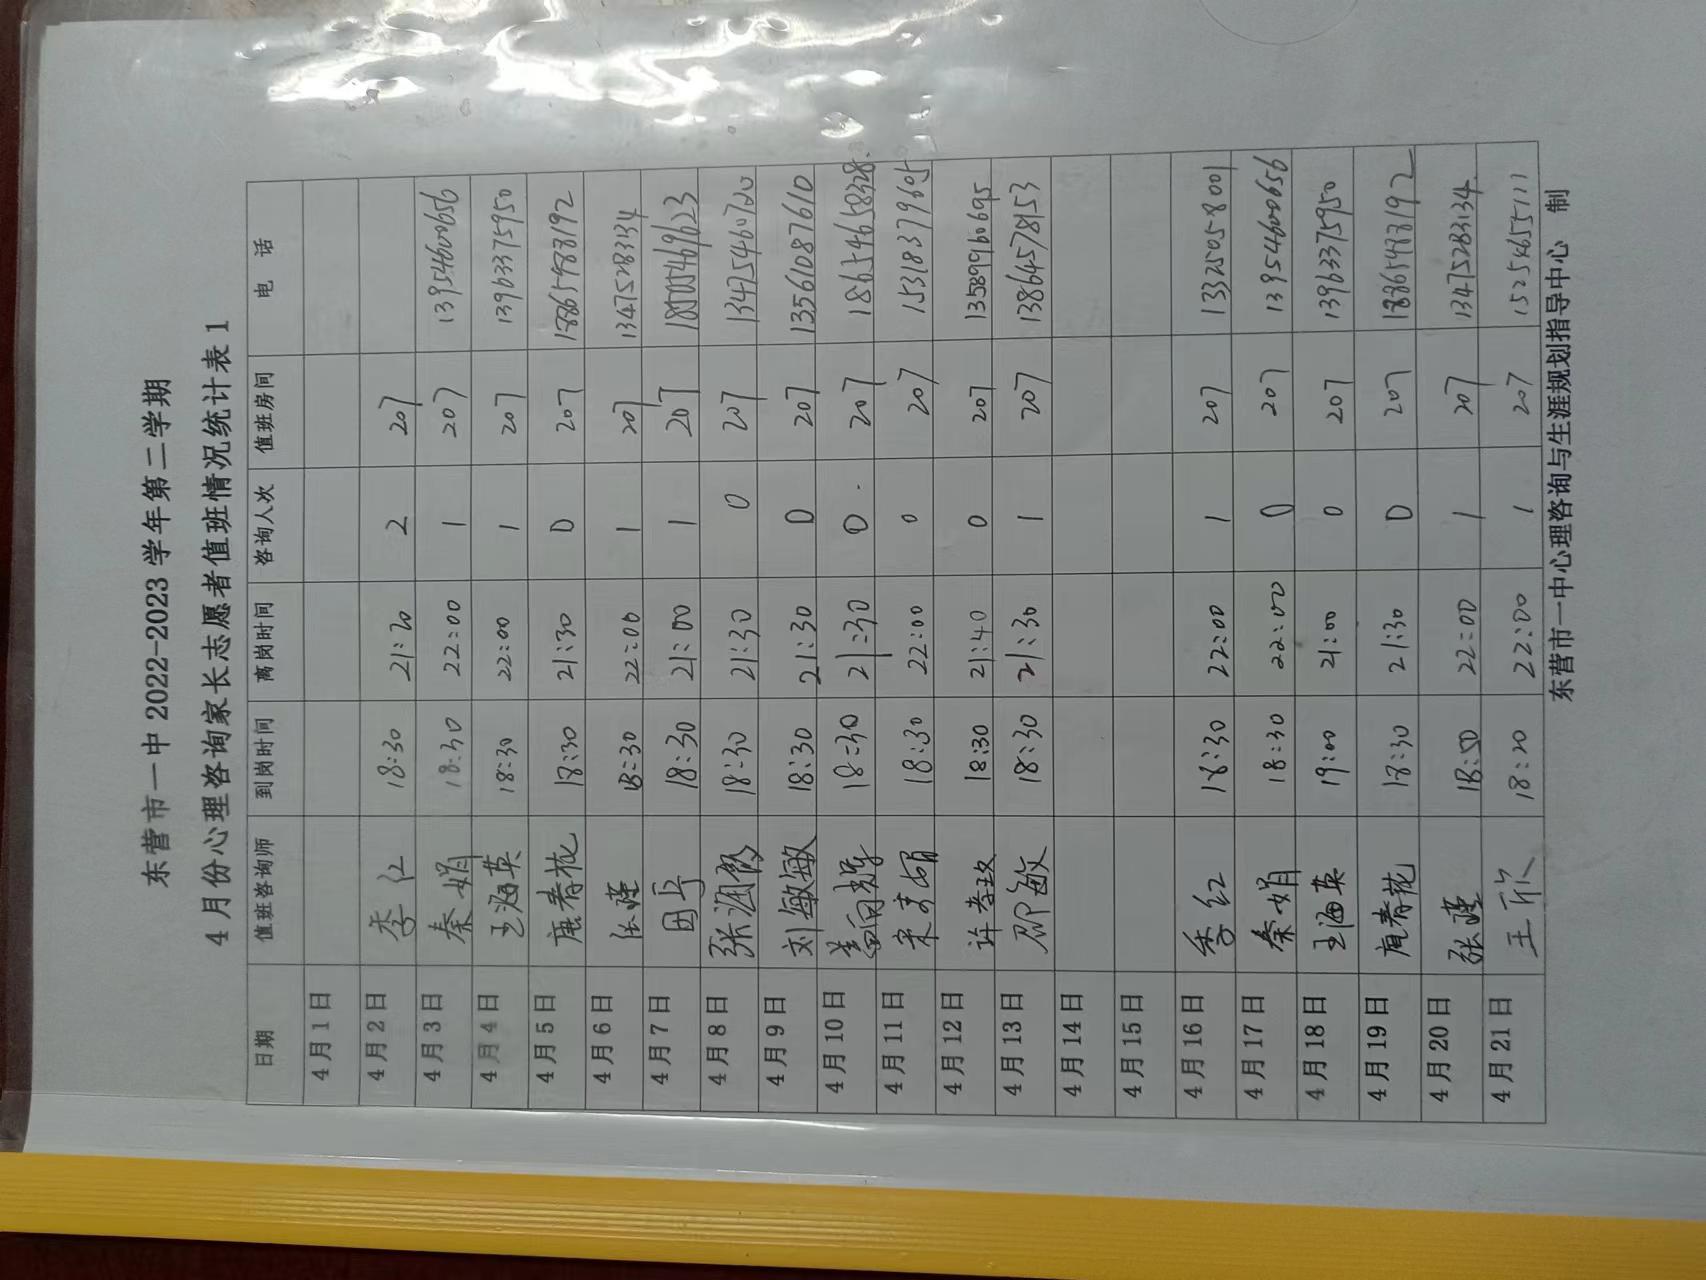 东营市一中 2022-2023 学年第二学期
4 月份心理咨询家长志愿者值班情况统计表 1
日期 值班咨询师 到岗时间 离岗时间 咨询人次 值班房间 电 话
4 月 1 日
4 月 2 日 李红 18:30 21:20 2 207
4 月 3 日 秦娟 18:30 22:00 1 207 13954600656
4 月 4 日 王海英 18:30 22:00 1 207 13963375950
4 月 5 日 唐春花 18:30 21:30 0 207 18865483192
4 月 6 日 18:30 22:00 1 207 13475283134
4 月 7 日 18:30 21:00 1 207 18005469623
4 月 8 日 张润霞 18:30 21:30 0 207 13425460720
4 月 9 日 刘敏敏 18:30 21:30 0 207 13561087610
4 月 10 日 18:30 21:30 0 207 18654658328
4 月 11 日 18:30 22:00 0 207 15318379605
4 月 12 日 许孝玟 18:30 21:40 0 207 13589960695
4 月 13 日 邵敏 18:30 21:30 1 207 13864578153
4 月 14 日
4 月 15 日
4 月 16 日 李红 18:30 22:00 1 207 13325058001
4 月 17 日 秦娟 18:30 22:00 0 207 13954600656
4 月 18 日 王海英 19:00 21:00 0 207 13963375950
4 月 19 日 唐春花 18:30 21:30 0 207 18865483192
4 月 20 日 张瑾 18:50 22:00 1 207 13475283134
4 月 21 日 王欣 18:20 22:00 1 207 15254655111
东营市一中心理咨询与生涯规划指导中心 制